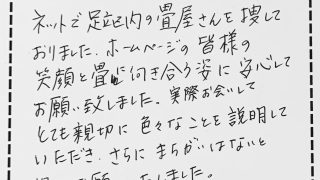 ネットで足立区内の畳屋さんを捜して
おりました。ホームページの皆様の
笑顔と畳に向き合う姿に安心して
お願い致しました。実際お会いして
とても親切に色々なことを説明して
いただき、さらにまちがいはないと
しました。